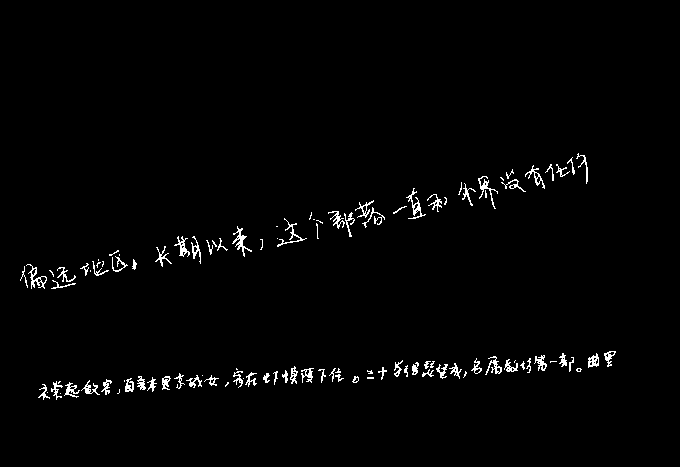 偏远地区。长期以来,这个部落一直和外界没有任何
自言本是京城女,家在虾蟆陵下住。十学得琵琶成,名属教坊第一部。曲